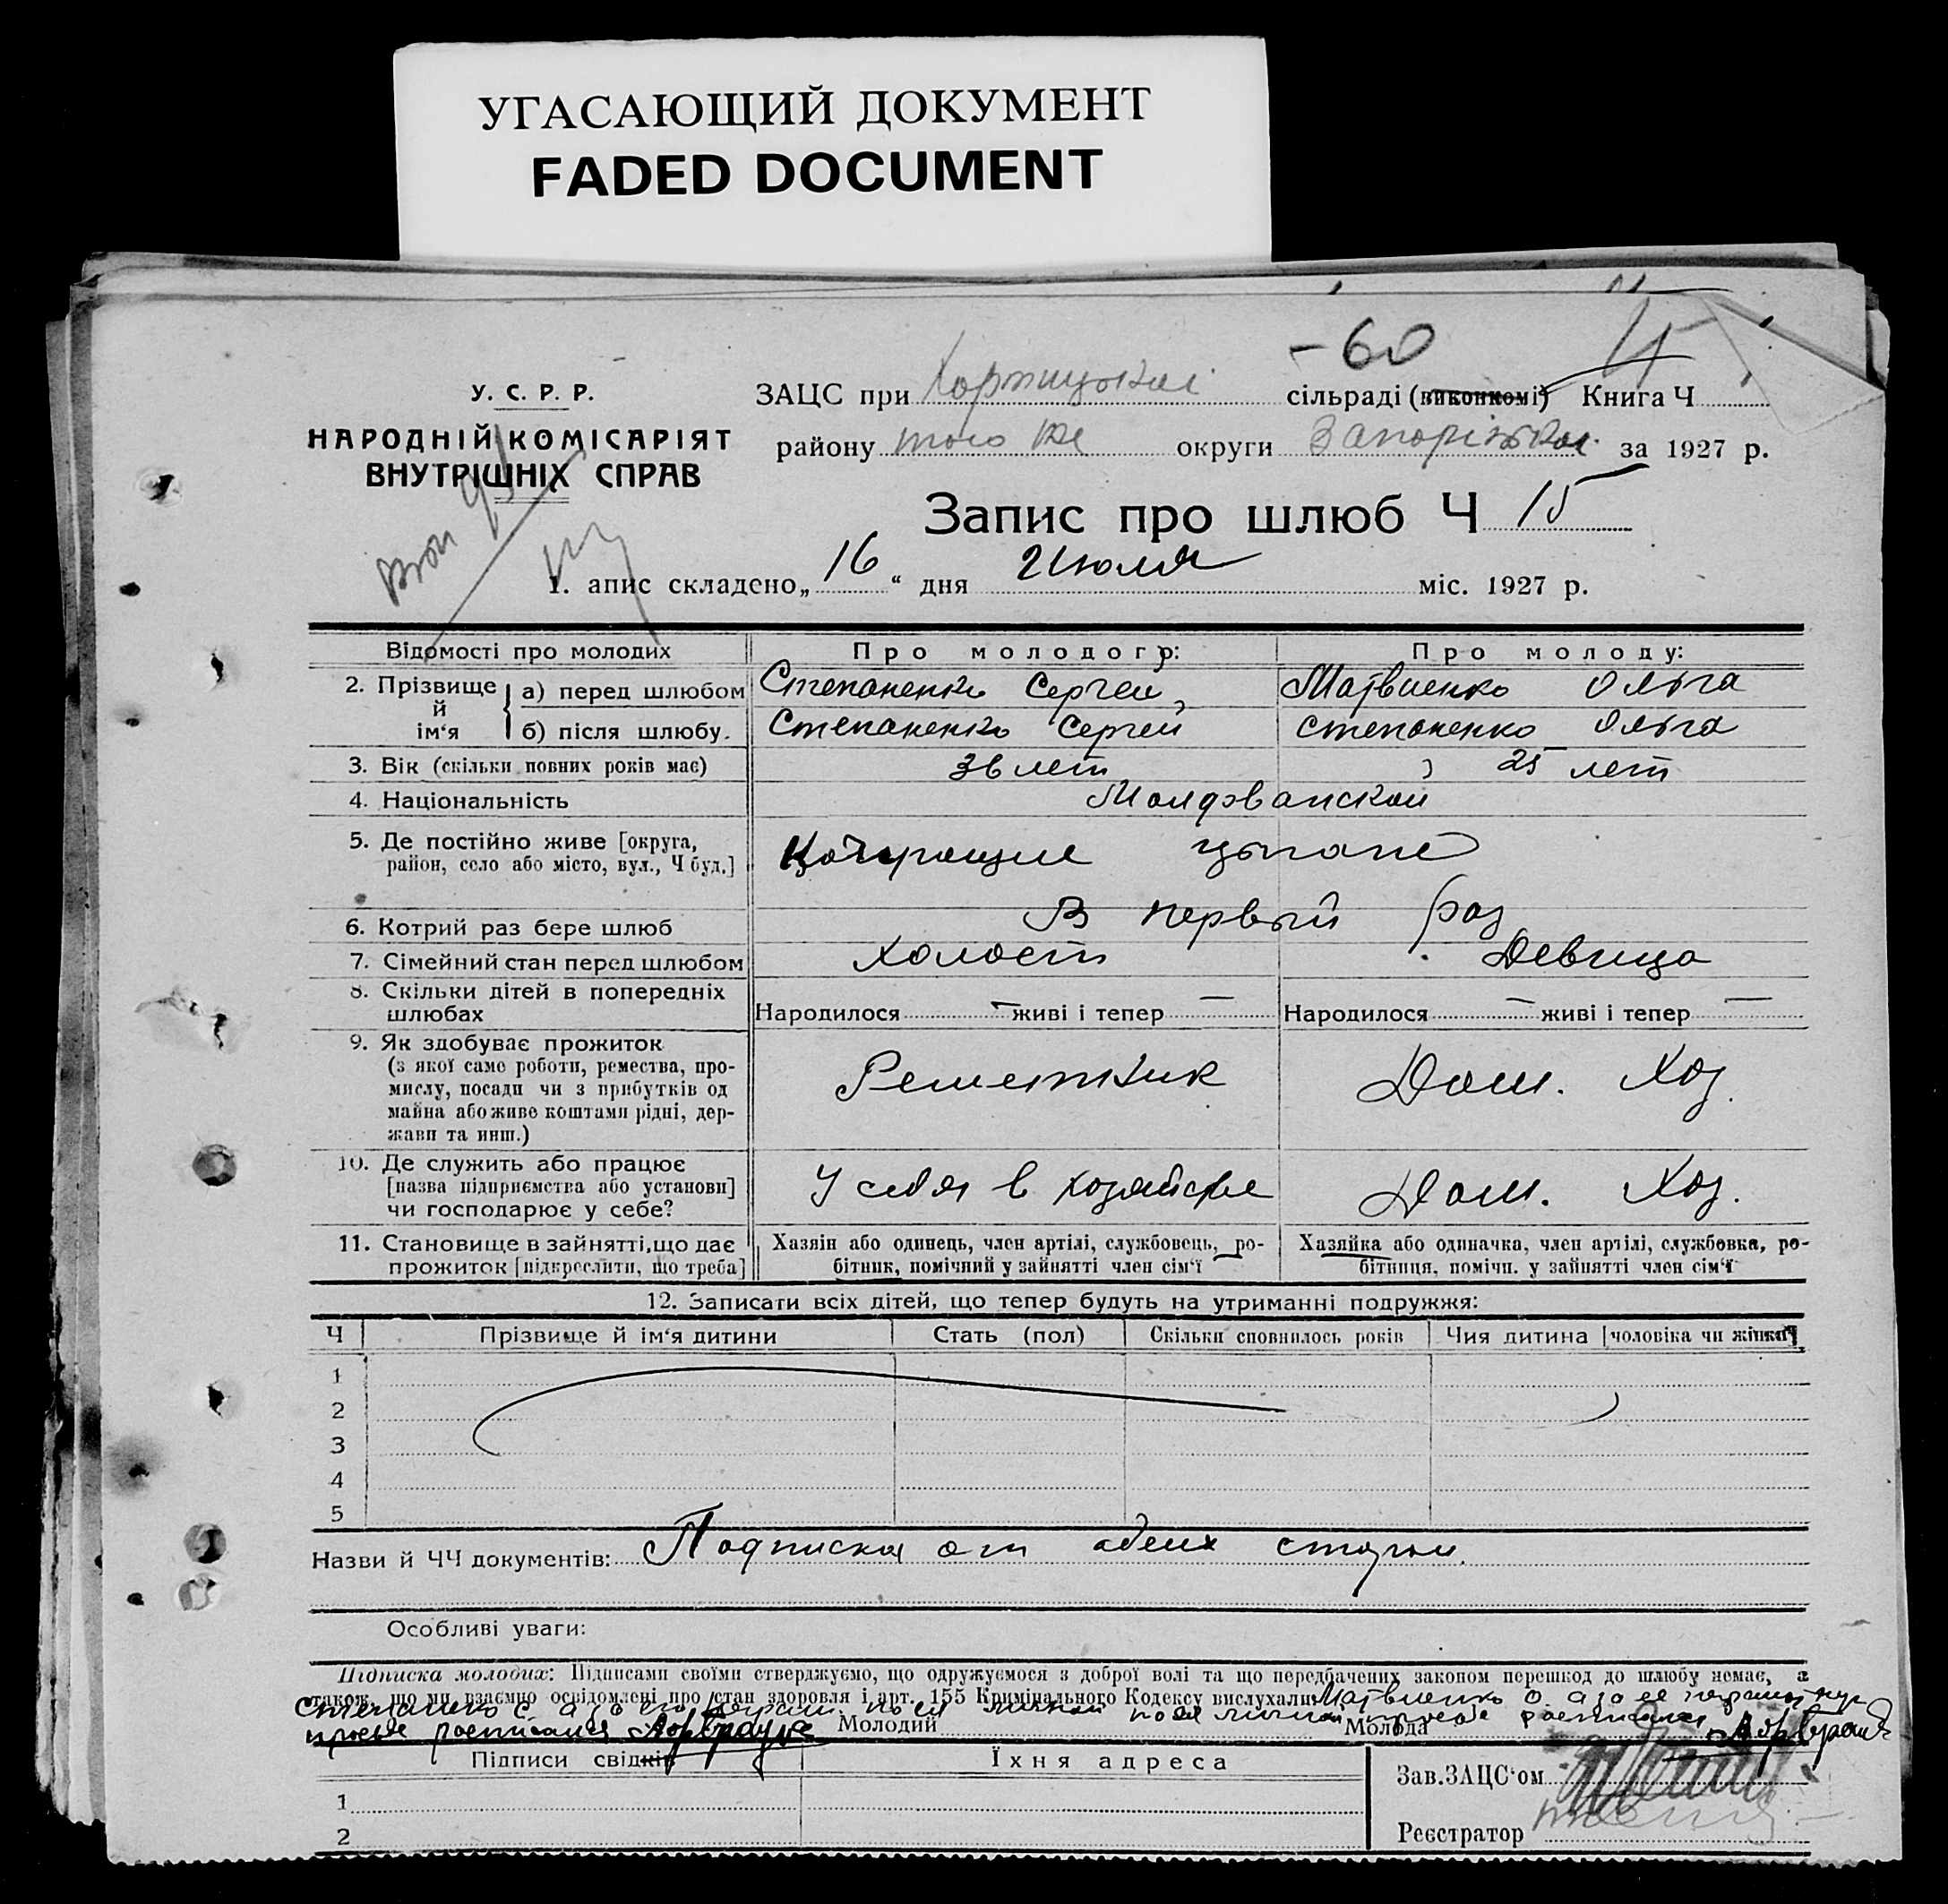 УГАСАЮЩИЙ ДОКУМЕНТ
FADED DOCUMENT
-60
У. С. Р. Р.
НАРОДНІЙ КОМІСАРІЯТ
ВНУТРІШНІХ СПРАВ
ЗАЦС при Хортицькій сільраді (виконкомі) Книга Ч
району того же округи Запоріжской за 1927 р.
Запис про шлюб Ч 15
1. апис складено „ 16 “ дня Июля міс. 1927 р.
Відомості про молодих Про молодого: Про молоду:
2. Прізвище й ім‘я а) перед шлюбом Степаненко Сергей Матвиенко Ольга
б) після шлюбу. Степаненко Сергей Степаненко Ольга
3. Вік (скільки повних років має) 36 лет 25 лет
4. Національність Молдованской
5. Де постійно живе [округа, Кочующие цыгане
район, село або місто, вул., Ч буд.]
6. Котрий раз бере шлюб В первый раз
7. Сімейний стан перед шлюбом Холост Девица
8. Скільки дітей в попередніх
шлюбах Народилося — живі і тепер — Народилося — живі і тепер —
9. Як здобуває прожиток
(з якої саме роботи, ремества, про-
мислу, посади чи з прибутків од
майна або живе коштами рідні, дер-
жави та инш.)
Дом. Хоз.
10. Де служить або працює
[назва підприємства або установи]
чи господарює у себе?
У себя в хозяйстве Дом. Хоз.
11. Становище в зайнятті, що дає Хазяін або одинець, член артілі, службовець, ро- Хазяйка або одиначка, член артілі, службовка, ро-
прожиток [підкреслити, що треба] бітник, помічний у зайнятті член сім‘ї бітниця, помічн. у зайнятті член сім‘ї
12. Записати всіх дітей, що тепер будуть на утриманні подружжя:
Ч Прізвище й ім‘я дитини Стать (пол) Скільки сповнилось років Чия дитина [чоловіка чи жінки]
1
2
3
4
5
Назви й ЧЧ документів: Подписка от обеих сторон.
Особливі уваги:
Підписка молодих: Підписами своїми стверджуємо, що одружуємося з доброї волі та що передбачених законом перешкод до шлюбу немає, а
також, що ми взаємно освідомлені про стан здоровля і арт. 155 Кримінального Кодексу вислухали. Матвиенко О. а за ее неграмотную
Степаненко С. а за его по личной по ея личной просьбе расписался
просьбе расписался Молодий Молода
Підписи свідків Їхня адреса
Зав. ЗАЦС‘ом
1
2
Реєстратор